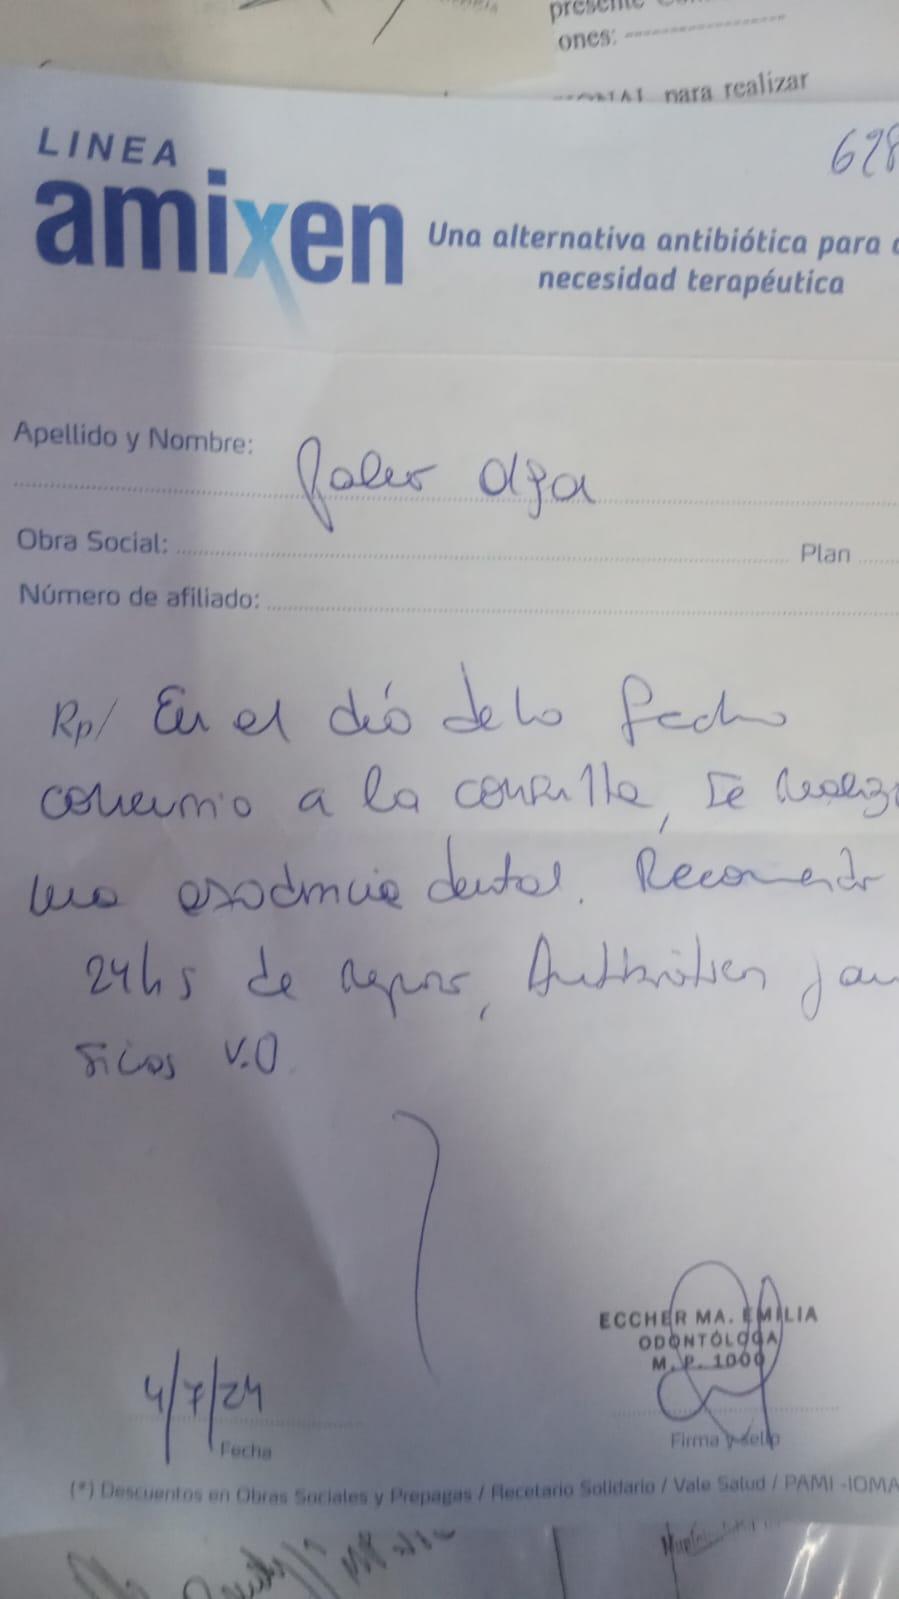 presente
ones:
para realizar
628
LINEA
amixen
Una alternativa antibiótica para
necesidad terapéutica
Apellido y Nombre: Olga
Obra Social: Plan
Número de afiliado:
Rp/ En el día de la fecha
a la consulta, se realiza
una exodoncia dental. Recomiendo
24hs de reposo,
V.O.
ECCHER MA. EMILIA
ODONTÓLOGA
M. P. 1000
4/7/24
Fecha
Firma y sello
(*) Descuentos en Obras Sociales y Prepagas / Recetario Solidario / Vale Salud / PAMI -IOMA